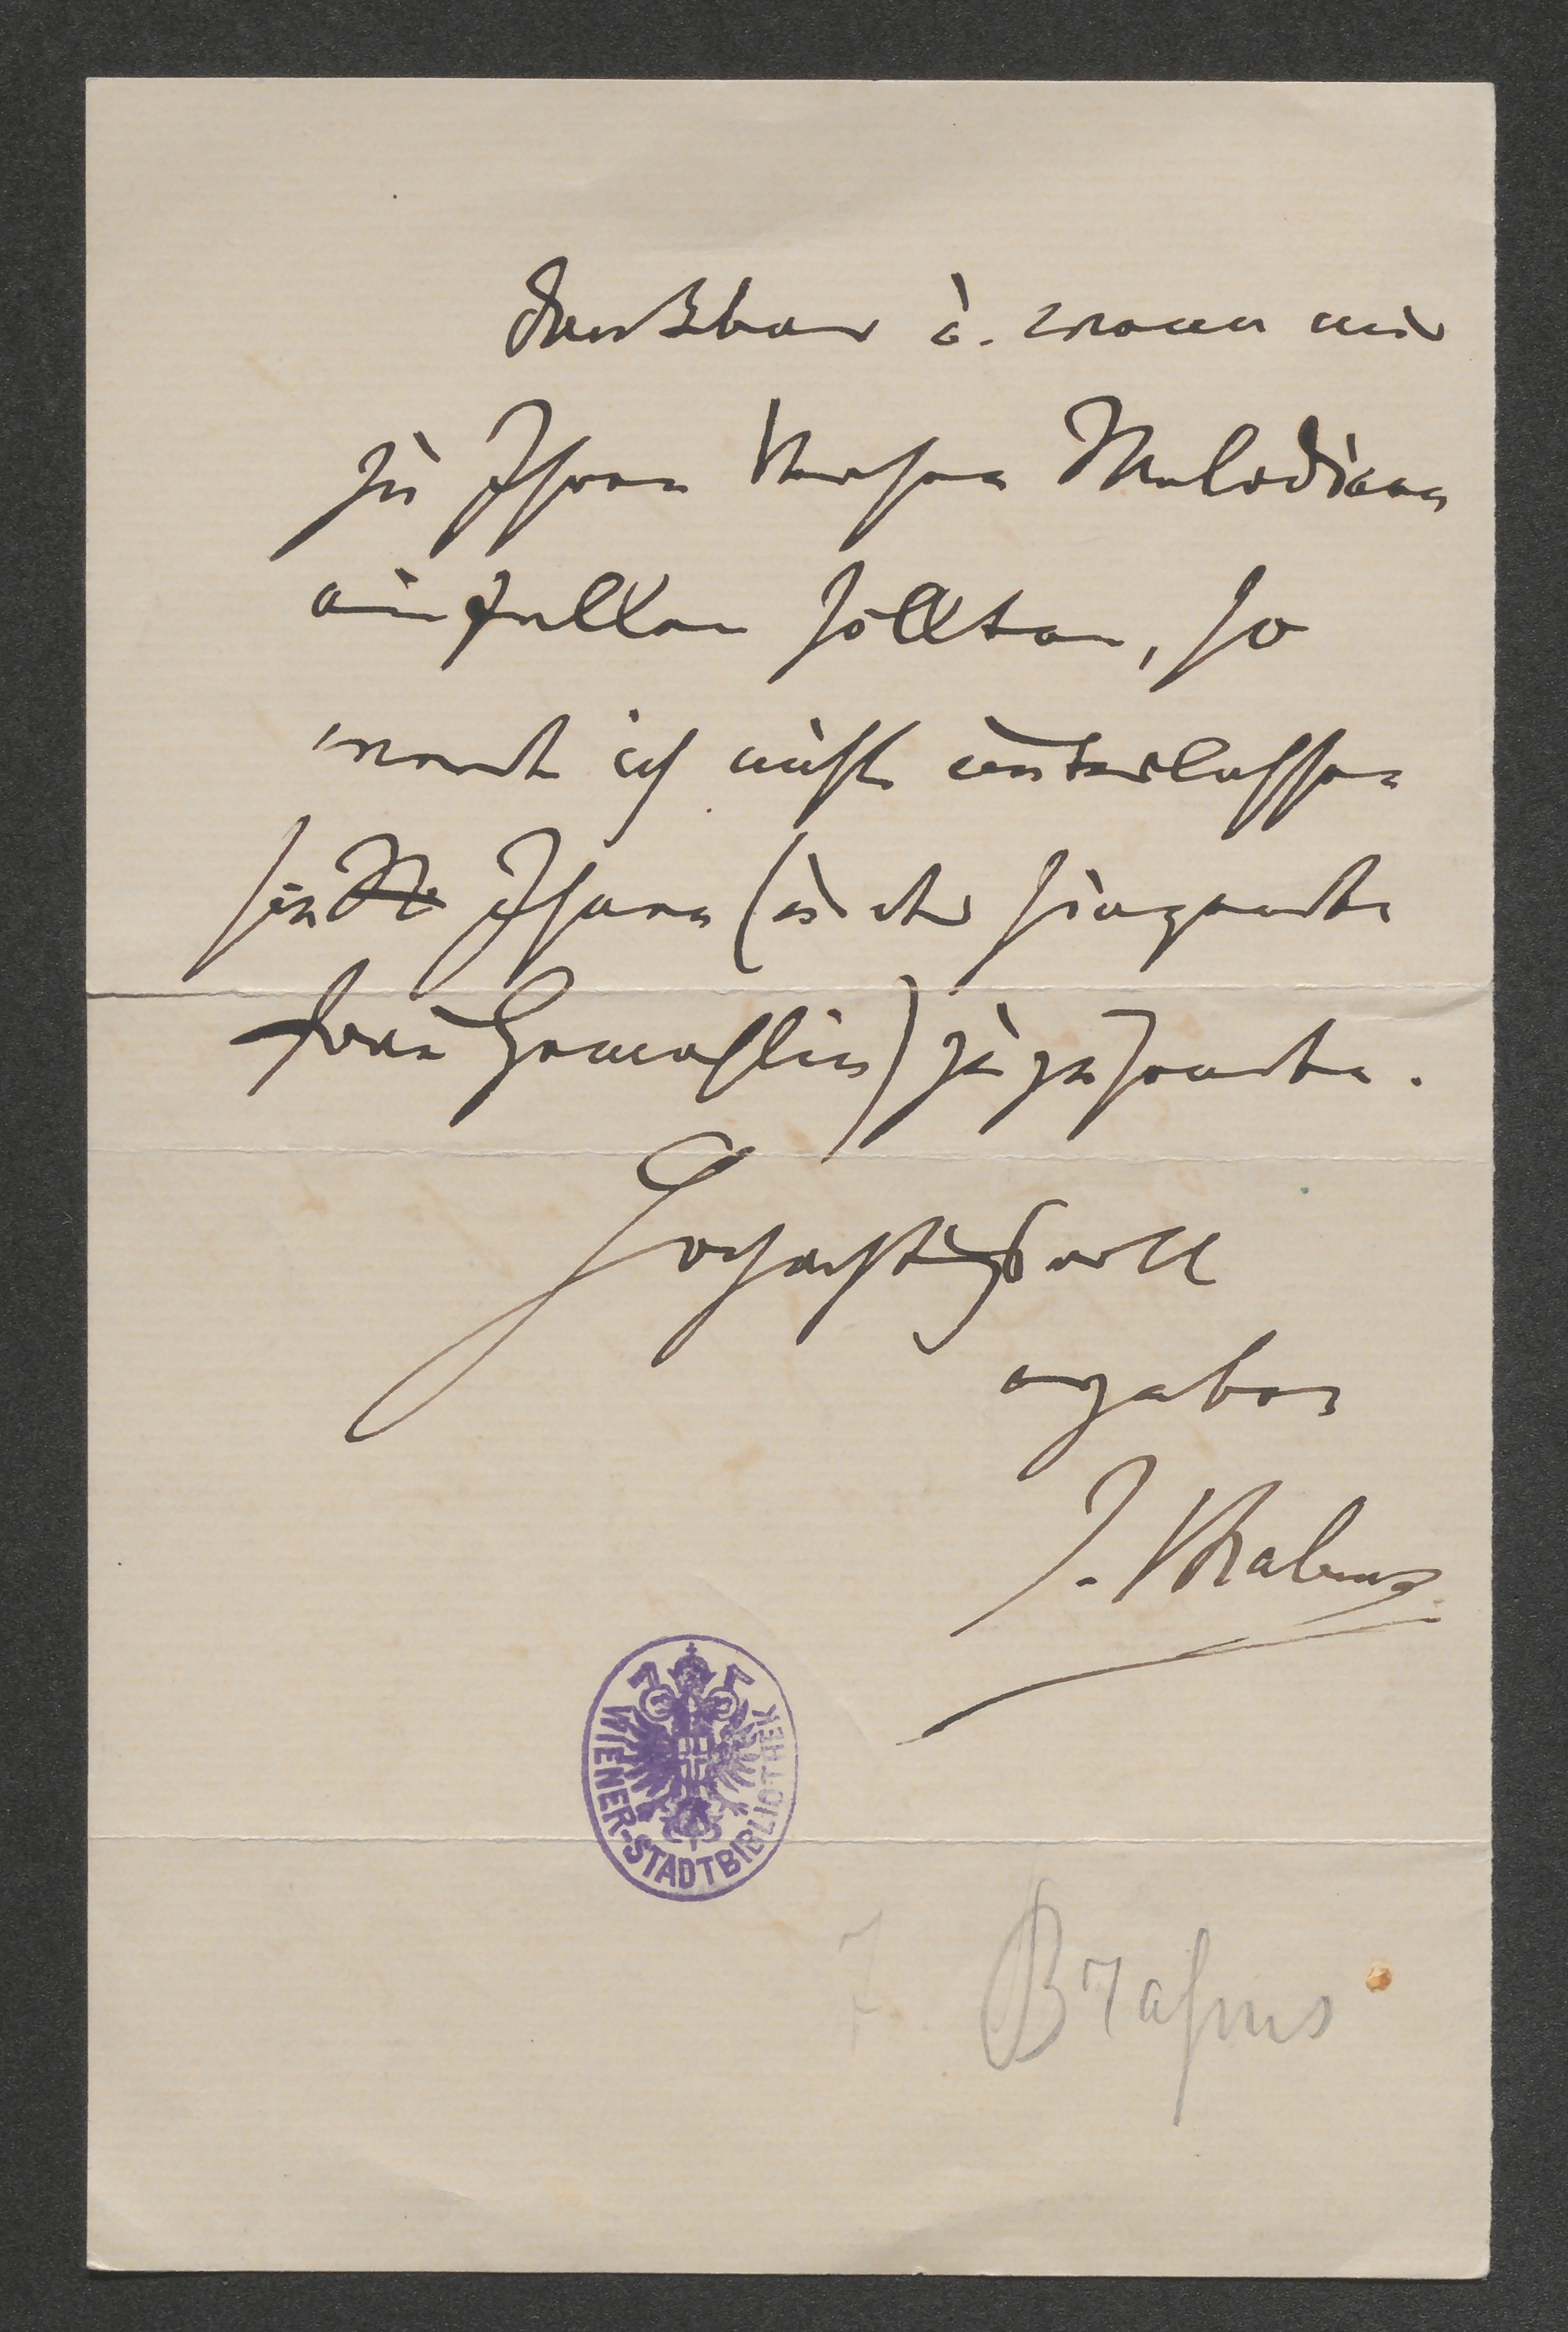 dankbar u. wenn mir
zu Ihren Versen Melodieen
einfallen sollten, so
werde ich nicht unterlassen
sie Ihnen (u. der singenden
Frau Gemahlin) zuzusenden.
Hochachtungsvoll
ergeben
J. Brahms
WIENER-STADTBIBLIOTHEK
J. Brahms